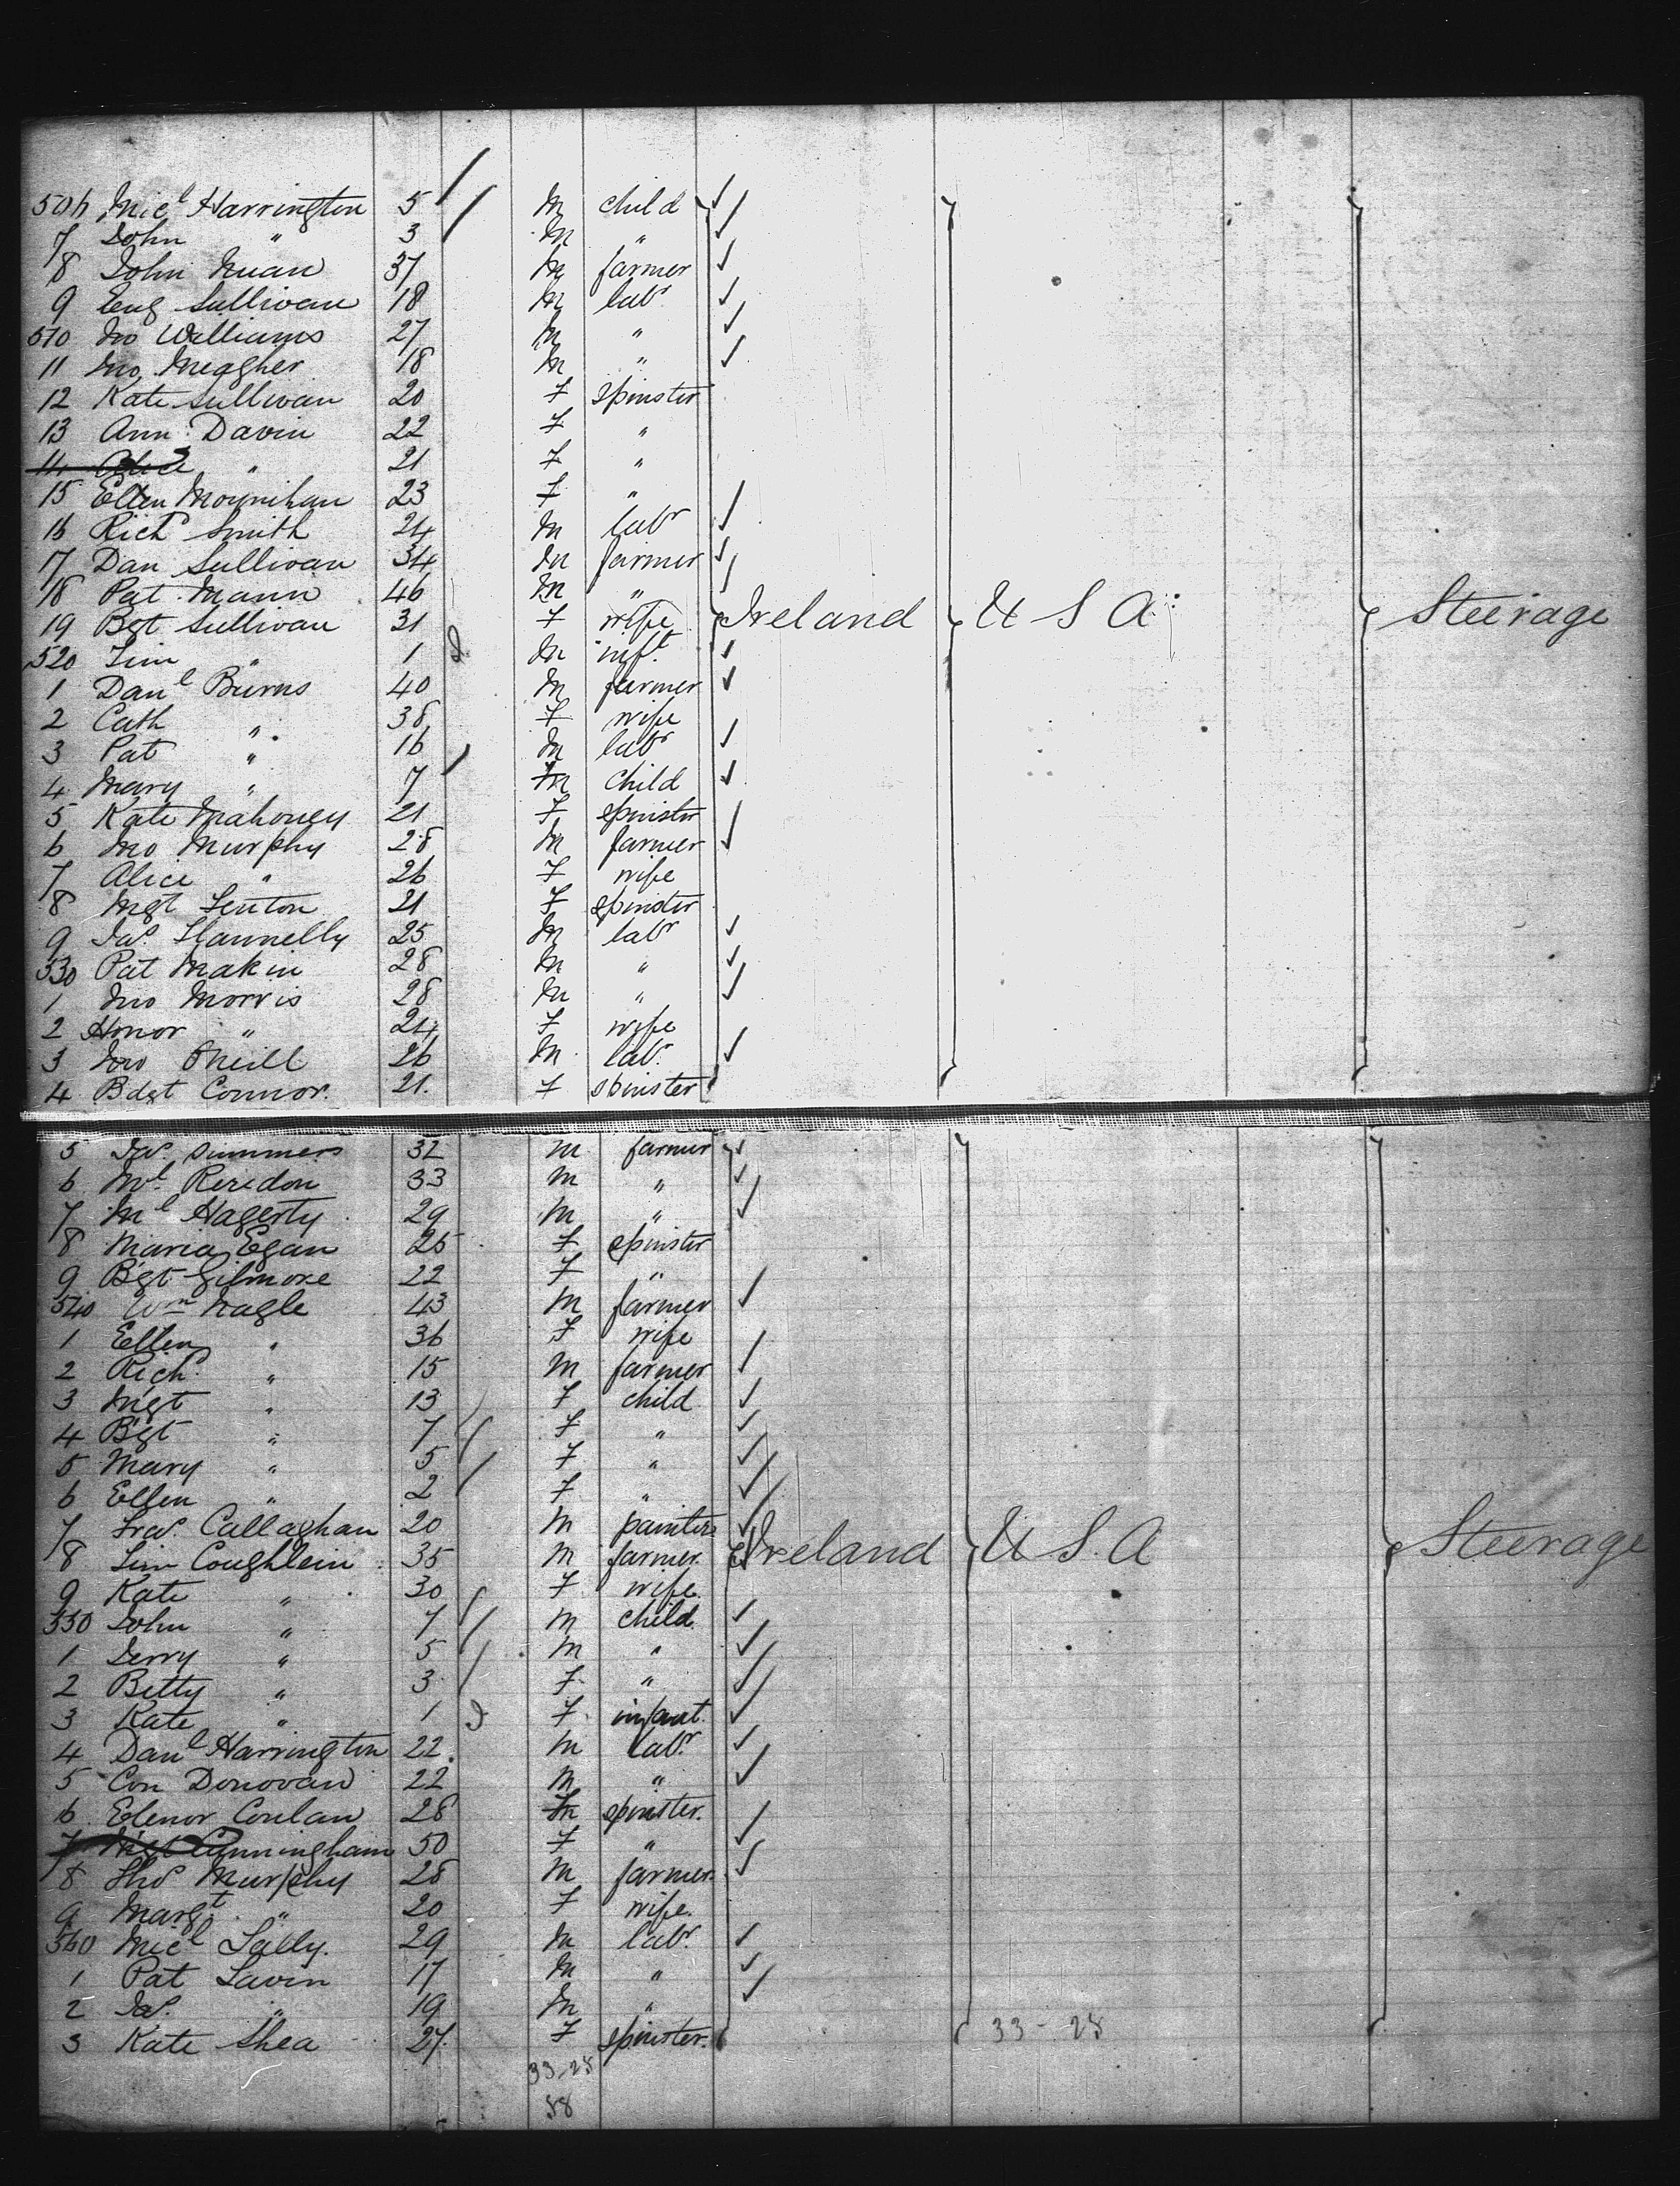 506 Micl Harrington 5 M child
7 John " 3 M "
8 John Nuan 37 M farmer
9 Eug Sullivan 18 M labr
510 Jno Williams 27 M "
11 Jno Meagher 18 M "
12 Kate Sullivan 20 F spinster
13 Ann Davin 22 F "
14 Alice " 21 F "
15 Ellen Mounihan 23 F "
16 Richd Smith 24 M labr
17 Dan Sullivan 34 M farmer
18 Pat Mann 46 M "
19 Bgt Sullivan 31 F wife Ireland U S A Steerage
520 Tim " 1 M inft
1 Danl Burns 40 M farmer
2 Cath " 38 F wife
3 Pat " 16 M labr
4 Mary " 7 child
5 Kate Mahoney 21 F spinster
6 Jno Murphy 28 M farmer
7 Alice " 26 F wife
8 Mgt Fenton 21 F spinster
9 Jas 25 M labr
530 Pat Makin 28 M "
1 Jno Morris 28 M "
2 Honor " 24 F wife
3 Jno ONeill 26 M labr
4 Bdgt Connor. 21. F spinster
5 Jas Summers 32 M farmer
6 Ml Reredon 33 M "
7 Ml Hagerty 29 M "
8 Maria Egan 25 F spinster
9 Bgt Gilmore 22 F "
540 Wm Nagle 43 M farmer
1 Ellen " 36 F wife
2 Richd " 15 M farmer
3 Mgt " 13 F child
4 Bgt " 7 F "
5 Mary " 5 F "
6 Ellen " 2 F "
7 Fras Callaghan 20 M painter
8 Tim Coughlein 35 M farmer Ireland U S. A Steerage
9 Kate " 30 F wife
550 John " 7 M child
1 Jerry " 5 M "
2 Betty " 3 F "
3 Kate " 1 F infant
4 Danl Harrington 22 M labr
5 Con Donovan 22 M "
6 Elenor Conlan 28 spinster.
7 Mgt Cunningham 50 F "
8 Thos Murphy 28 M farmer
9 Margt " 20 F wife.
560 Micl Lally. 29 M labr
1 Pat Lavin 17 M "
2 Jas. " 19 M "
3 Kate Shea 27. F spinster. 33 - 28
33-25
58